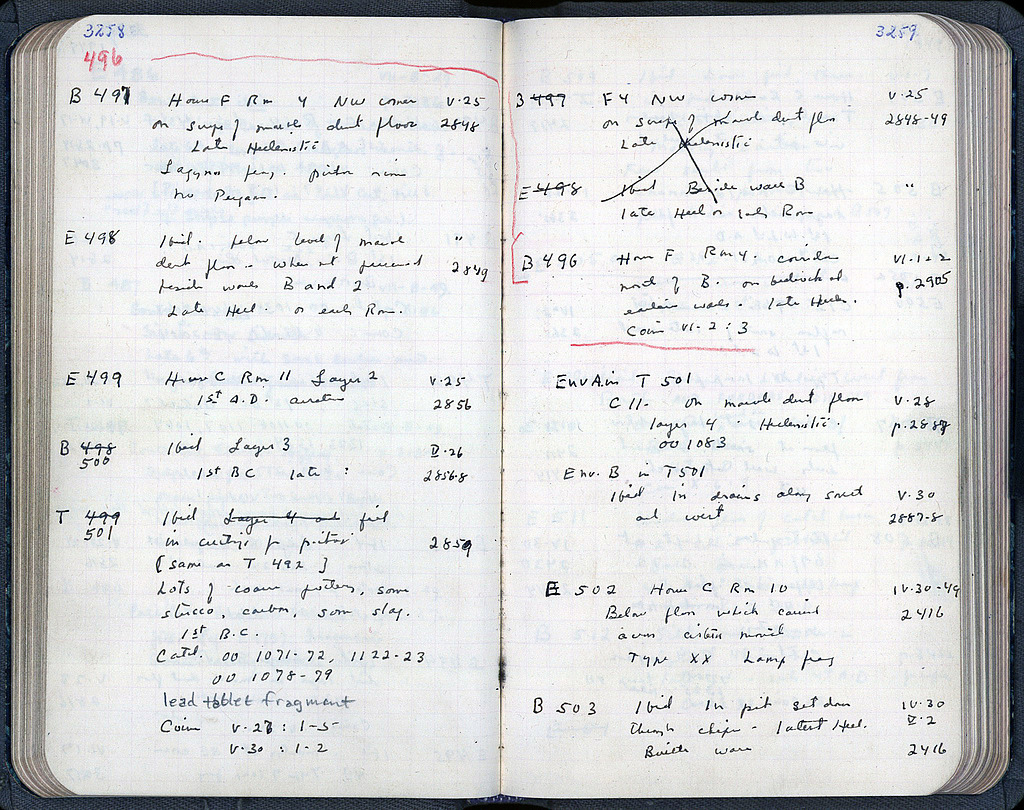 3258
496
B 497 House F Rm 4 NW corner V.25
on surface of marble dust floor 2848
Late Hellenistic
Lagynos frag, pithos rim
no Pergam.
E 498 Ibid. below level of marble "
dust floor - when not preserved 2849
beside walls B and 2
Late Hell or early Rom.
E 499 House C Rm 11 Layer 2 V.25
1st A.D. 2856
B 498 Ibid Layer 3 V.26
500
1st BC late 2856.8
T 499 Ibid Layer 4 and fill
501
in cutting for pithos 2859
[Same as T 492]
Lots of coarse pottery, some
stucco, carbon, some slag.
1st B.C.
Catd. 00 1071-72, 1122-23
00 1078-79
lead tablet fragment
Coins V.27: 1-5
V.30 : 1-2
3259
B 497 F4 NW corner V.25
on surface of marble dust floor 2848-49
Late Hellenistic
E 498 Ibid Beside wall B "
late Hell or early Rom
B 496 House F Rm 4. corridor VI.1+2
north of B. on bedrock at p. 2905
earlier walls - late Hell.
Coin VI-2 : 3
Env A in T 501
C 11. On marble dust floor V.28
layer 4. Hellenistic. p.2887
00 1083
Env. B in T 501
Ibid in drains along south V.30
and west 2887-8
E 502 House C Rm 10 IV.30-49
Below floor which covered 2416
Type XX Lamp frag
B 503 Ibid In pit set down IV.30
through chips - latest Hell. V.2
Builders ware 2416